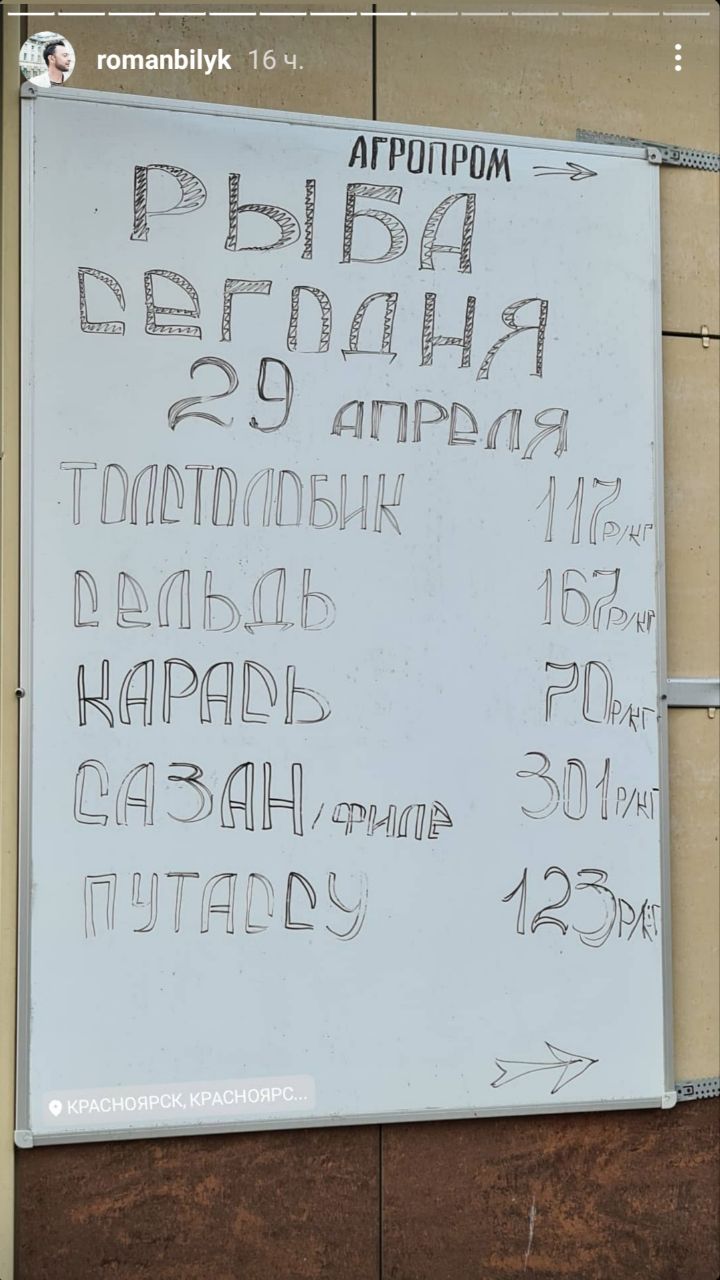 romanbilyk 16 ч.
АГРОПРОМ
РЫБА
СЕГОДНЯ
29 АПРЕЛЯ
ТОЛСТОЛОБИК 117 Р/КГ
СЕЛЬДЬ 167 Р/КГ
КАРАСЬ 70 Р/КГ
САЗАН/ФИЛЕ 301 Р/КГ
ПУТАССУ 123 Р/КГ
КРАСНОЯРСК, КРАСНОЯРС...